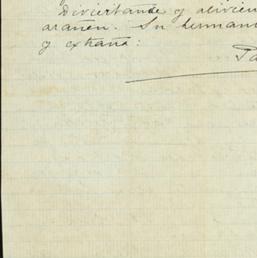 Diviertanse y alivien
arañen. Su hermano
y extraña:
Pa